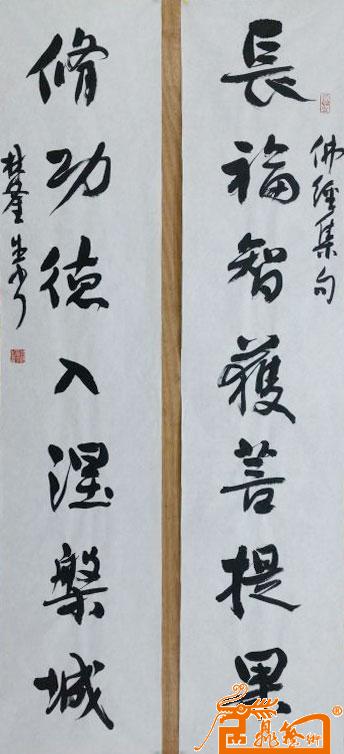 長福智獲菩提果
佛經集句
脩功德入涅槃城